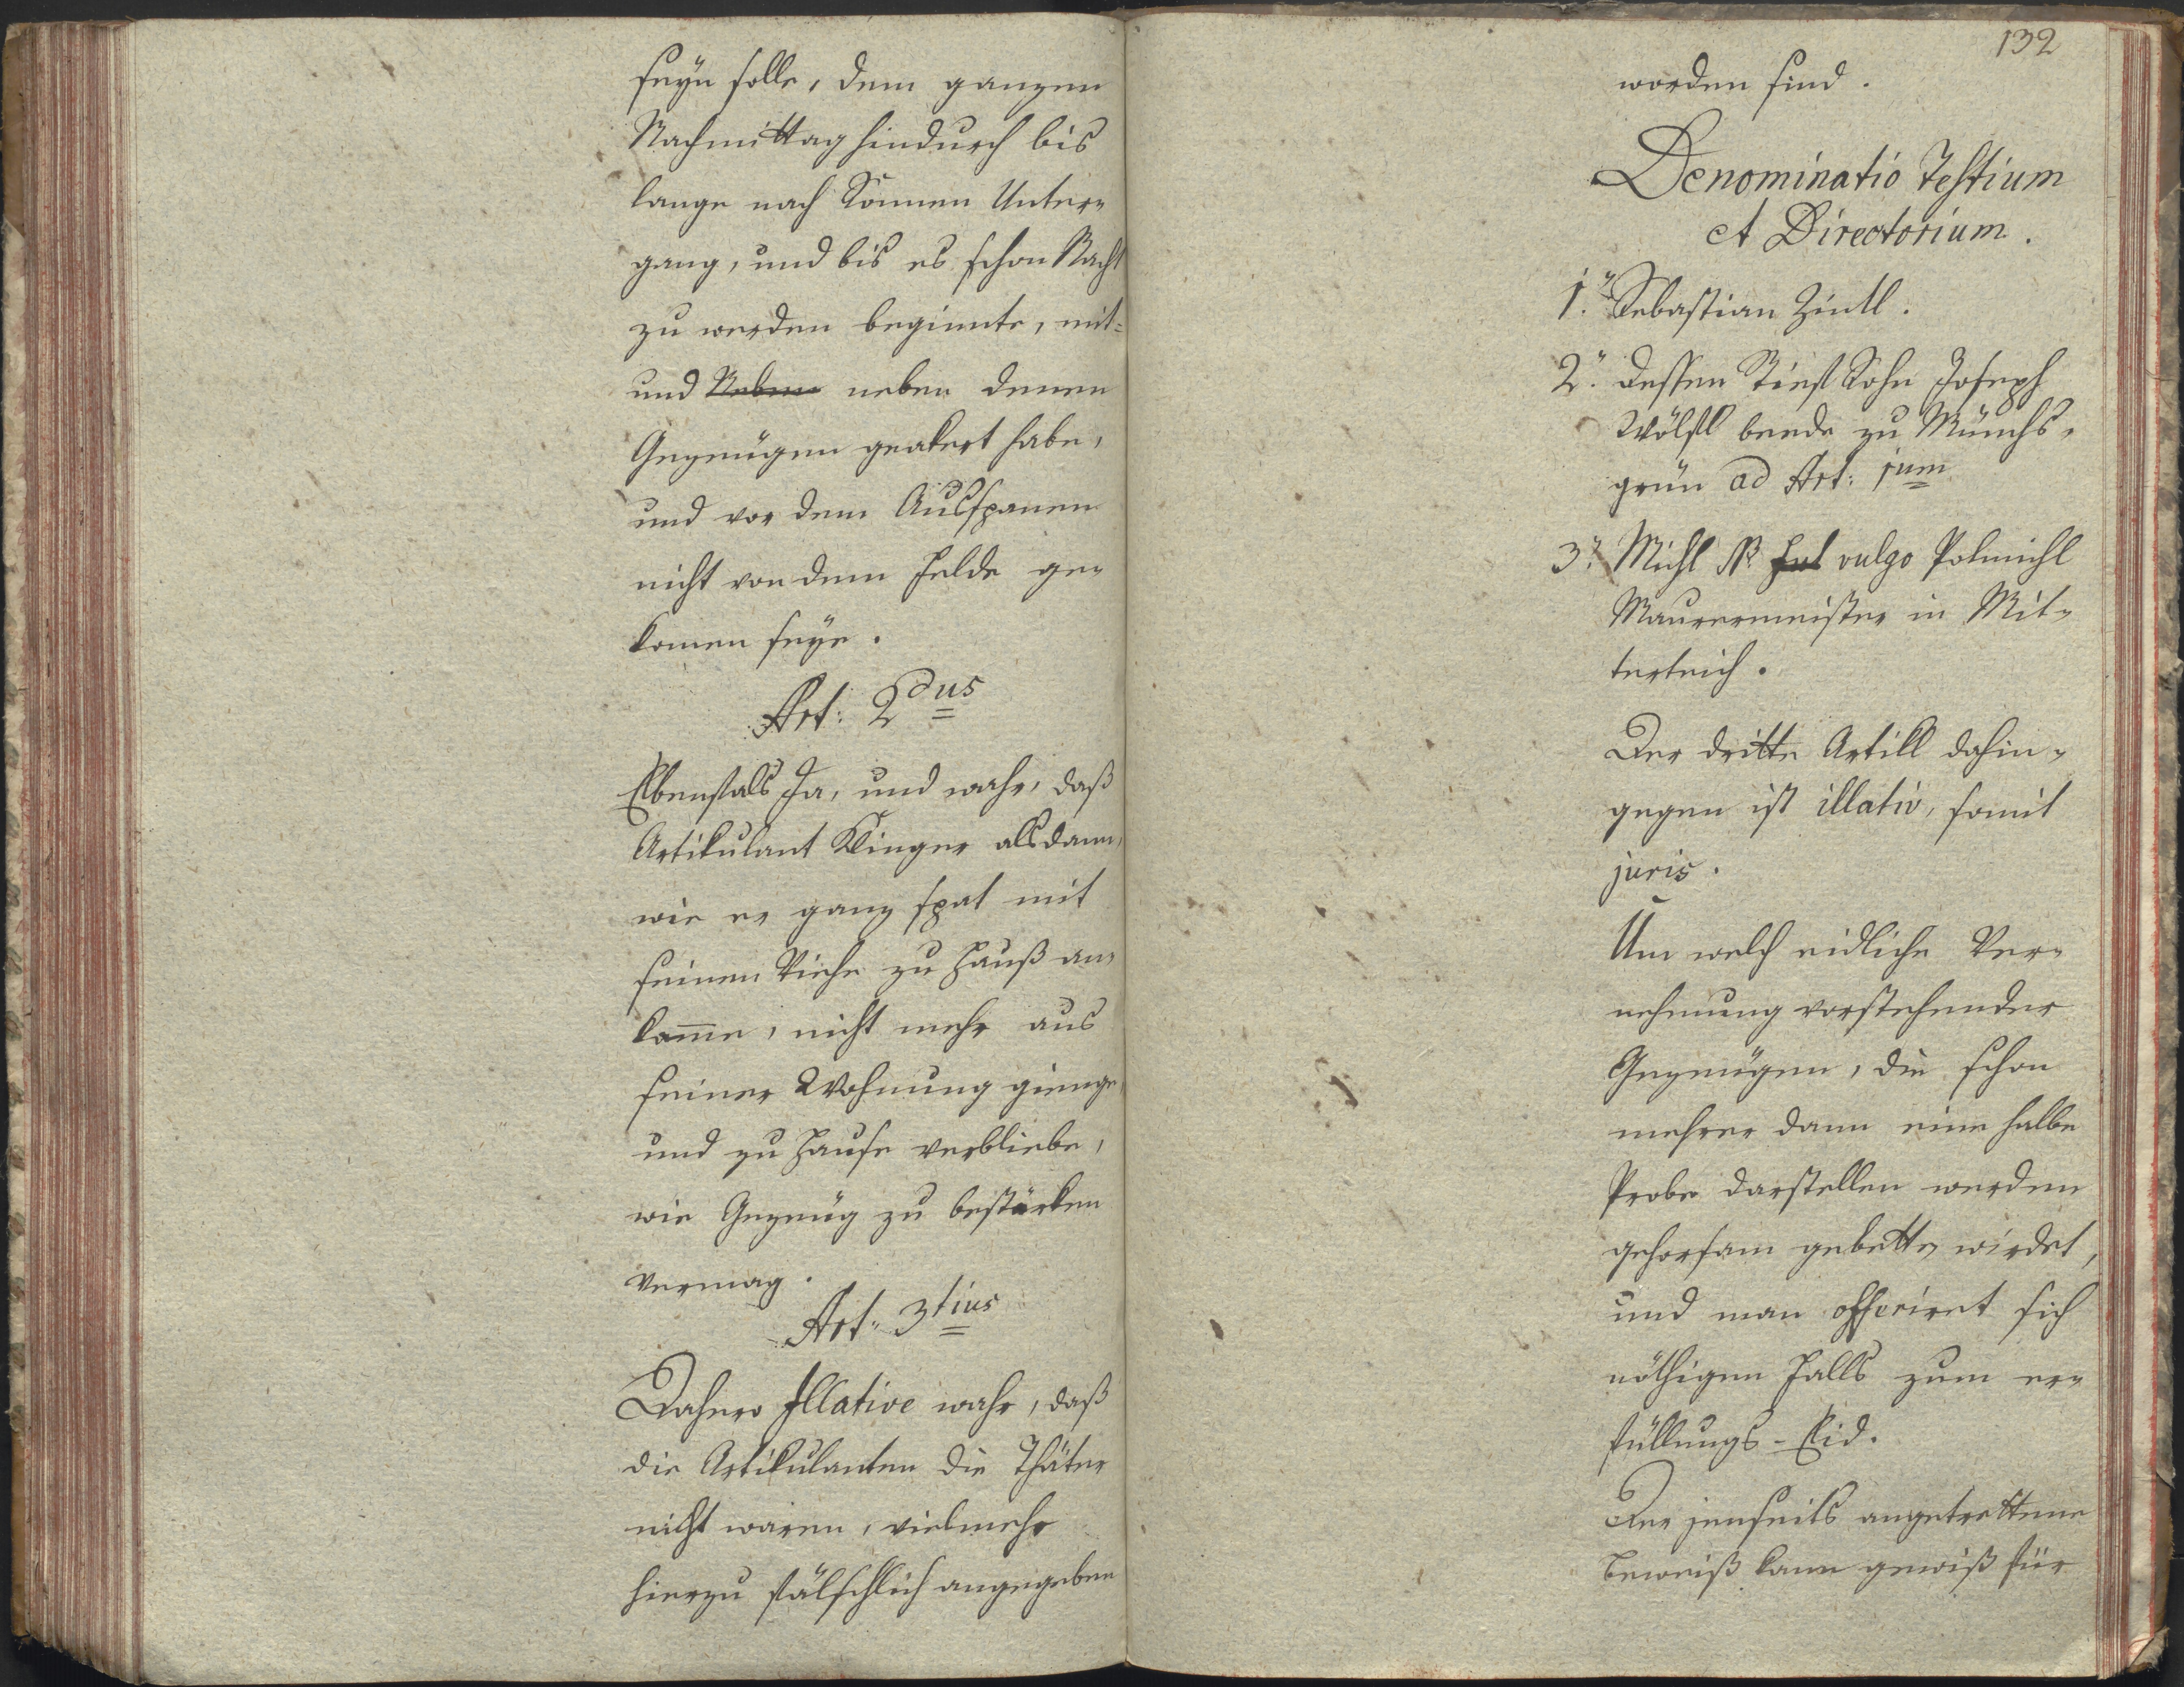 seyn solle, dem ganzen
Nachmittag hindurch bis
lange nach Sonnen Unter-
gang, und bis es schon Nacht
zu werden beginnte, mit=
und Neben neben denen
Gezeugen geakert habe,
und vor dem Ausspanen
nicht von dem Felde ge-
komen seye.
Art: 2dus
Ebenfals Ja, und wahr, daß
Artikulant Klinger alsdann,
wie er ganz spat mit
seinem Viehe zu Hauß an-
kam̅e, nicht mehr aus
seiner Wohnung gienge,
und zu Hause verbliebe,
wie Gezeug zu bestärken
vermag.
Art: 3tius
Dahero Illative wahr, daß
die Artikulanten die Thäter
nicht waren, vielmehr
hierzu fälschlich angegeben
132
worden sind.
Denominatio Testium
et Directorium.
1. Sebastian Zintl.
2. dessen Stiefsohn Joseph
Wölfl beede zu Münchs-
grün ad Art: 1um
3. Michl N. vulgo Polmichl
Maurermeister in Mit-
terteich.
Der dritte Artikl dahin-
gegen ist illativ, somit
juris.
Um welch eidliche Ver-
nehmung vorstehender
Gezeugen, die schon
mehrer dann eine halbe
Probe darstellen werden
gehorsam gebetten wirdet,
und man offeriret sich
nöthigen Falls zum er-
füllungs-Eid.
Der jenseits angetrettene
Beweiß kann gewiß für